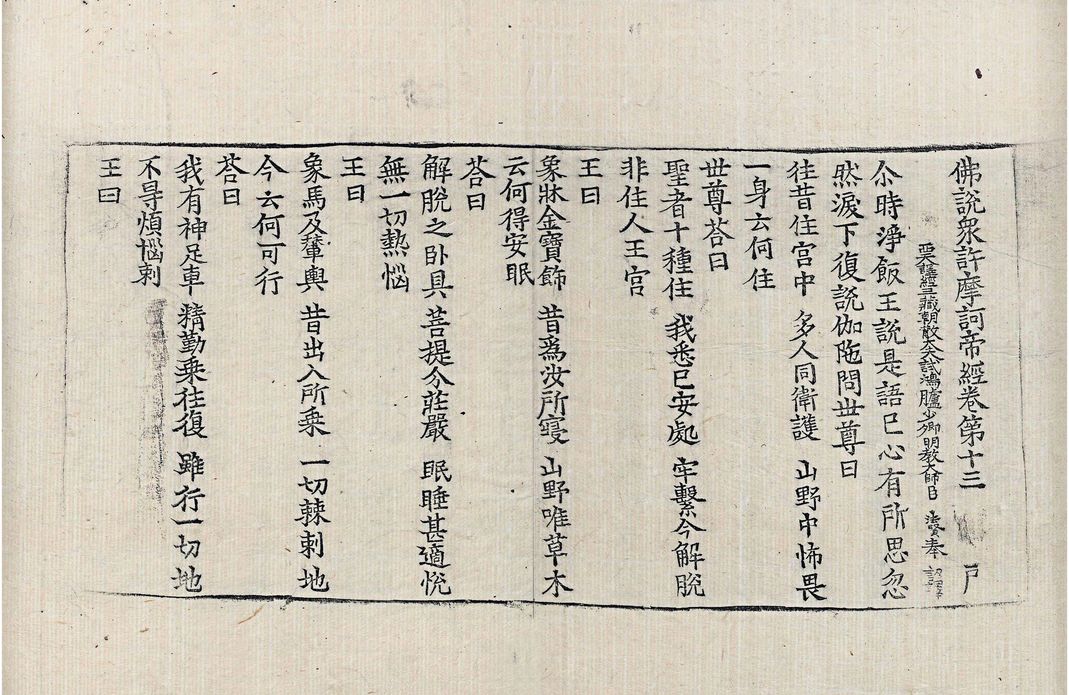 佛說衆許摩訶帝經卷第十三 戸
西天譯經三藏朝散大夫試鴻臚少卿明教大師臣 法賢奉 詔譯
尒時淨飯王說是語已心有所思忽
然淚下復說伽陁問世尊曰
往昔住宫中 多人同衛護 山野中怖畏
一身云何住
世尊荅曰
聖者十種住 我悉已安處 牢繫今解脫
非住人王宫
王曰
象牀金寶飾 昔爲汝所寑 山野唯草木
云何得安眠
荅曰
解脫之卧具 菩提分莊嚴 眠睡甚適悅
無一切熱惱
王曰
象馬及輦輿 昔出入所乘 一切棘刺地
今云何可行
荅曰
我有神足車 精勤乗往復 雖行一切地
不㝵煩惱刺
王曰